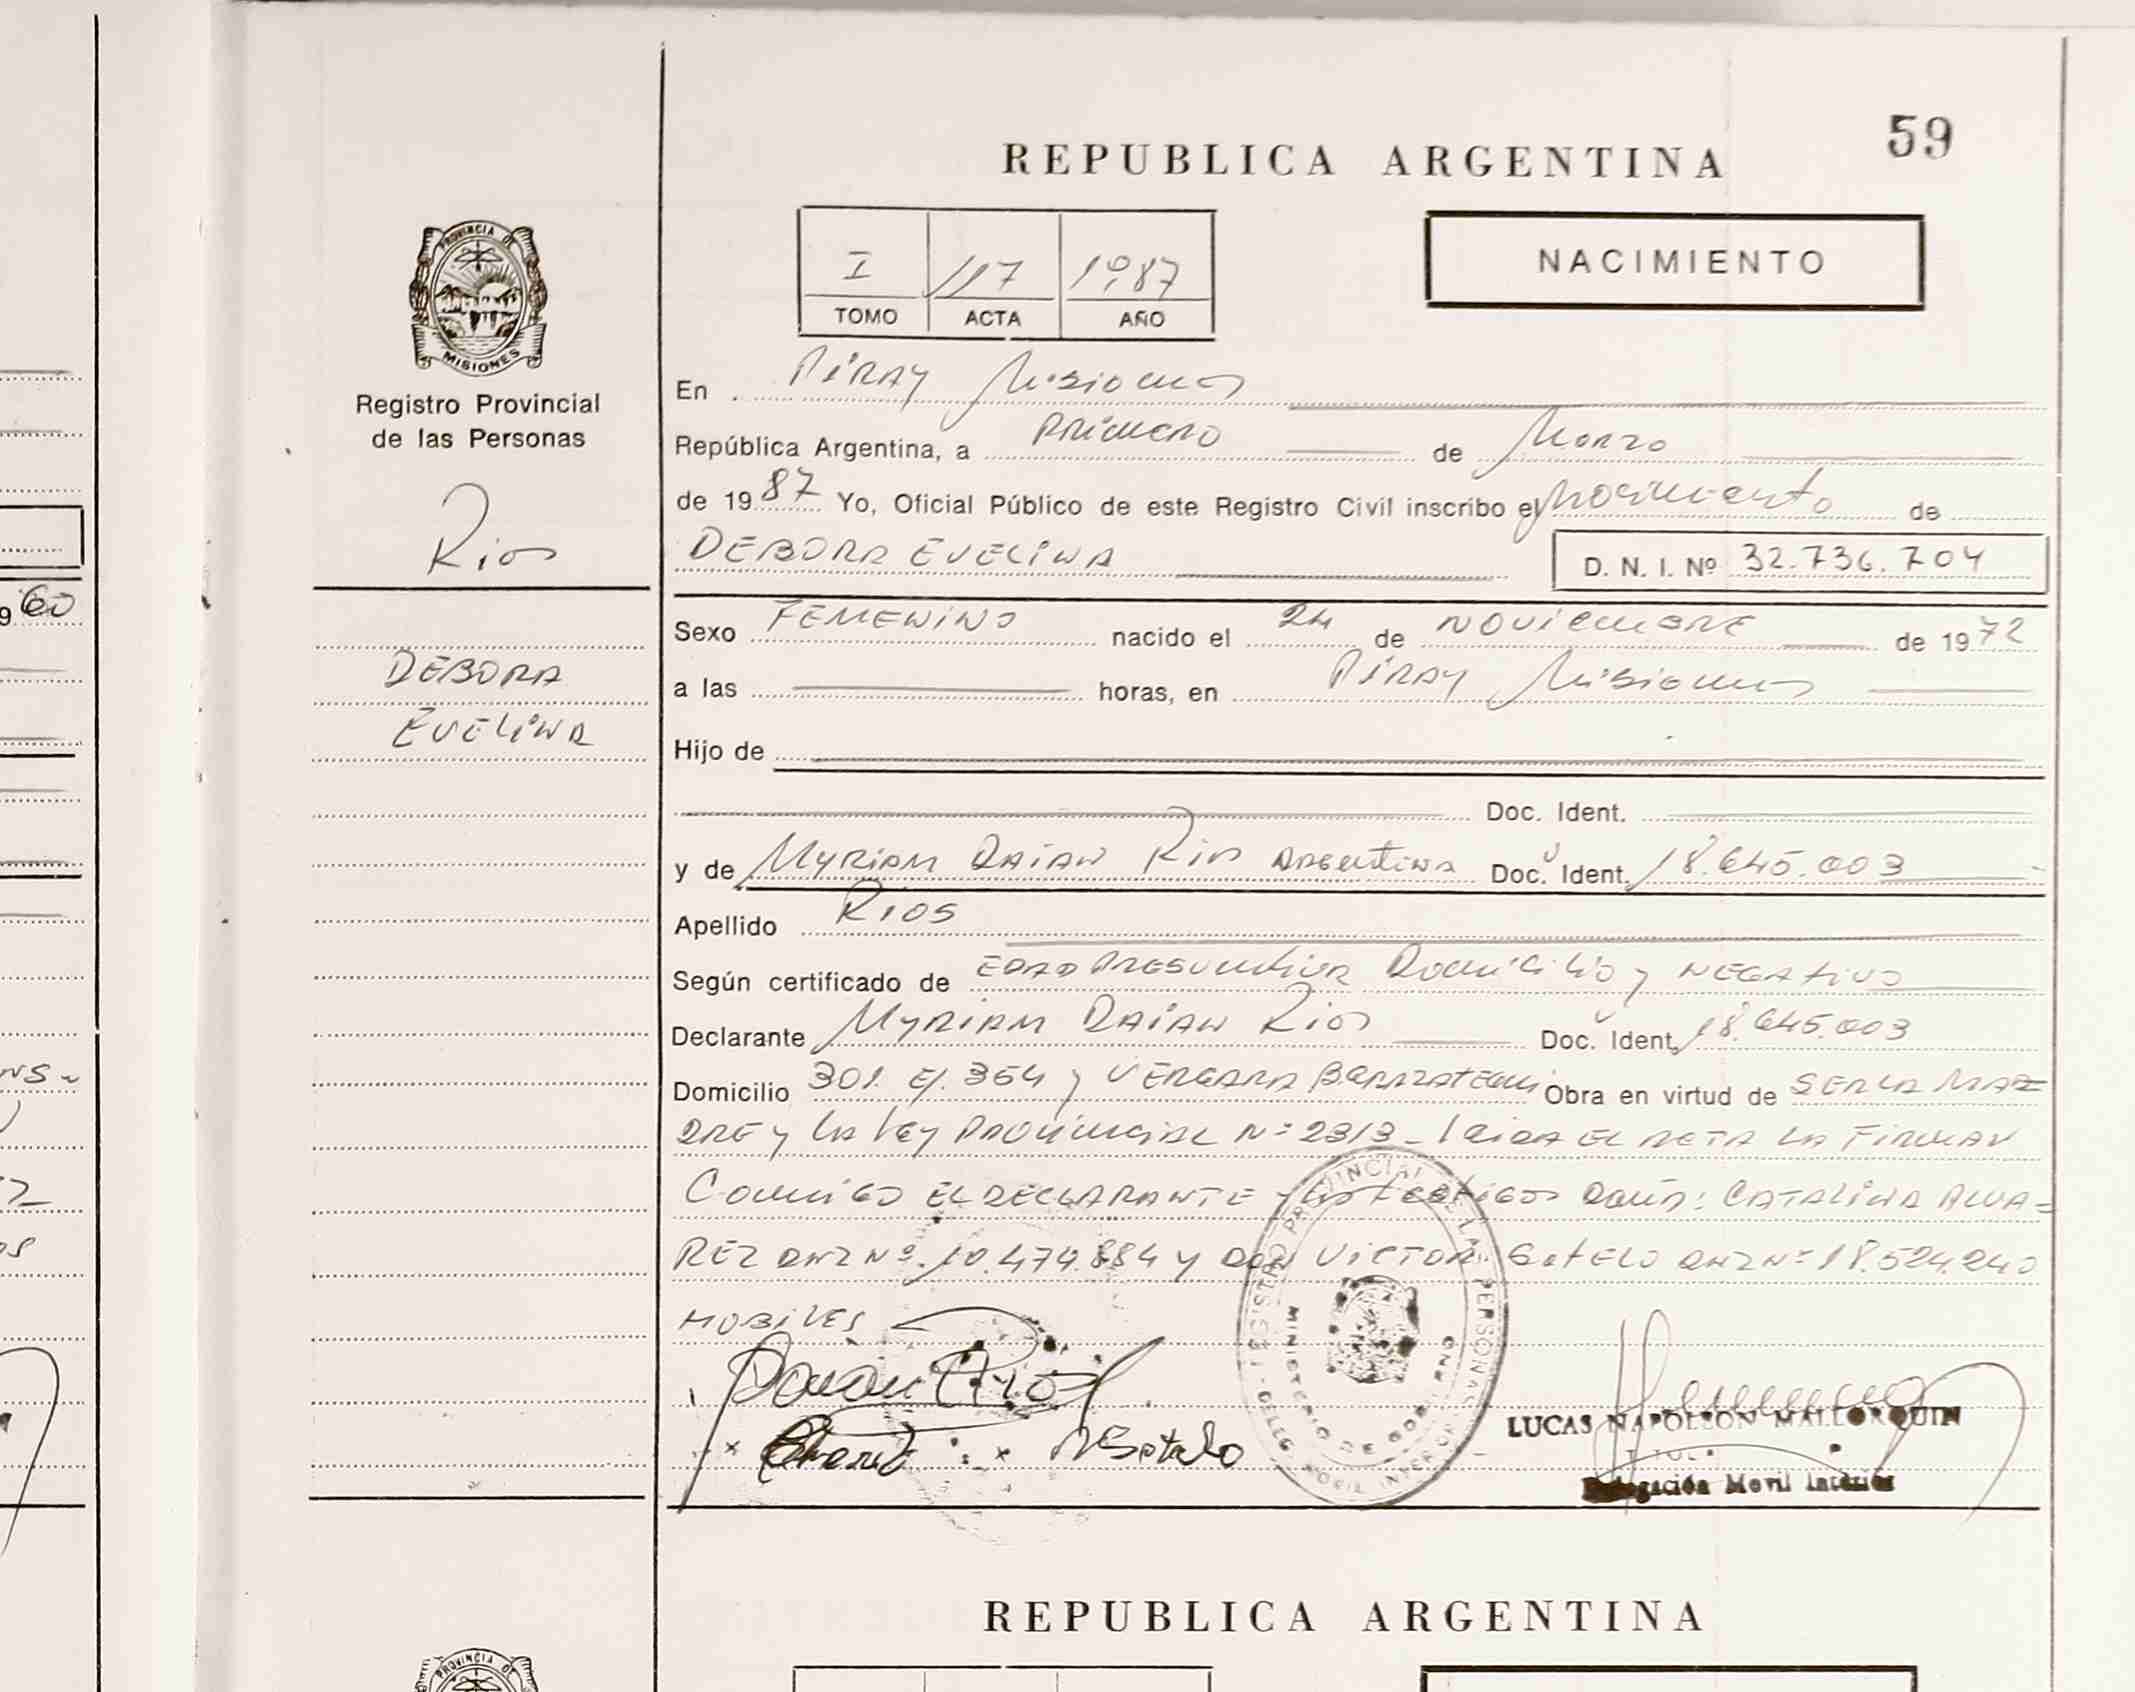 59
REPUBLICA ARGENTINA
PROVINCIA DE
MISIONES
Registro Provincial
de las Personas
Rios
DEBORA
EVELINA
I 117 1987
TOMO ACTA AÑO
NACIMIENTO
En PIRAY Misiones
República Argentina, a PRIMERO de Marzo
de 1987 Yo, Oficial Público de este Registro Civil inscribo el Nacimiento de
DEBORA EVELINA D. N. I. Nº 32.736.704
Sexo FEMENINO nacido el 24 de NOVIEMBRE de 1972
a las horas, en PIRAY Misiones
Hijo de
Doc. Ident.
y de MYRIAM DAIAN Rios ARGENTINA Doc. Ident. 18.645.003
Apellido RIOS
Según certificado de EDAD PRESUNTIVA Domicilio y NEGATIVO
Declarante MYRIAM DAIAN Rios Doc. Ident. 18.645.003
Domicilio 301. E/. 364 y VERGARA Obra en virtud de SER LA MA=
DRE y LA Ley PROVINCIAL Nº 2313 - Leida EL ACTA LA FIRMAN
Conmigo EL DECLARANTE y los testigos DOÑA: CATALINA ALVA=
REZ DNI Nº 10.474.884 y DON VICTOR SOTELO DNI Nº 18.524.240
MOBILES
REGISTRO PROVINCIAL DE LAS PERSONAS
MINISTERIO DE GOBIERNO
DELEG. MOVIL INTERIOR
Daian Rios
x x Sotelo
LUCAS NAPOLEON MALLORQUIN
Delegación Movil Interior
REPUBLICA ARGENTINA
PROVINCIA DE
60